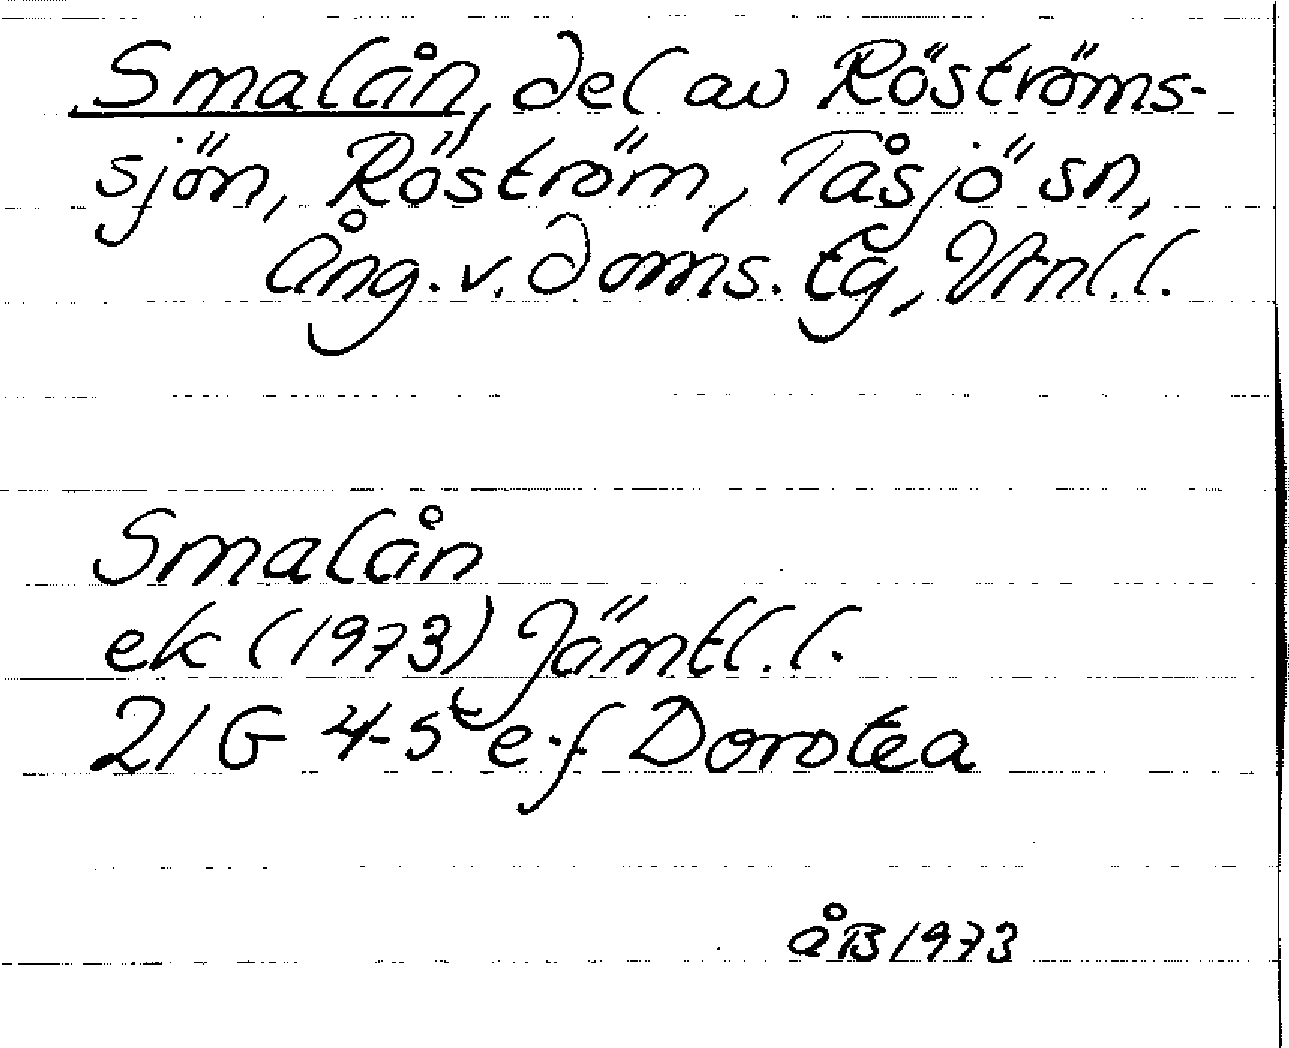 Smalån, del av Röströms-
sjön, Röström, Tåsjö sn,
Ång. v. doms. tg, Vtnl. l.
Smalån
ek (1973) Jämtl. l.
21 G 4-5 e-f Dorotea
åB 1973